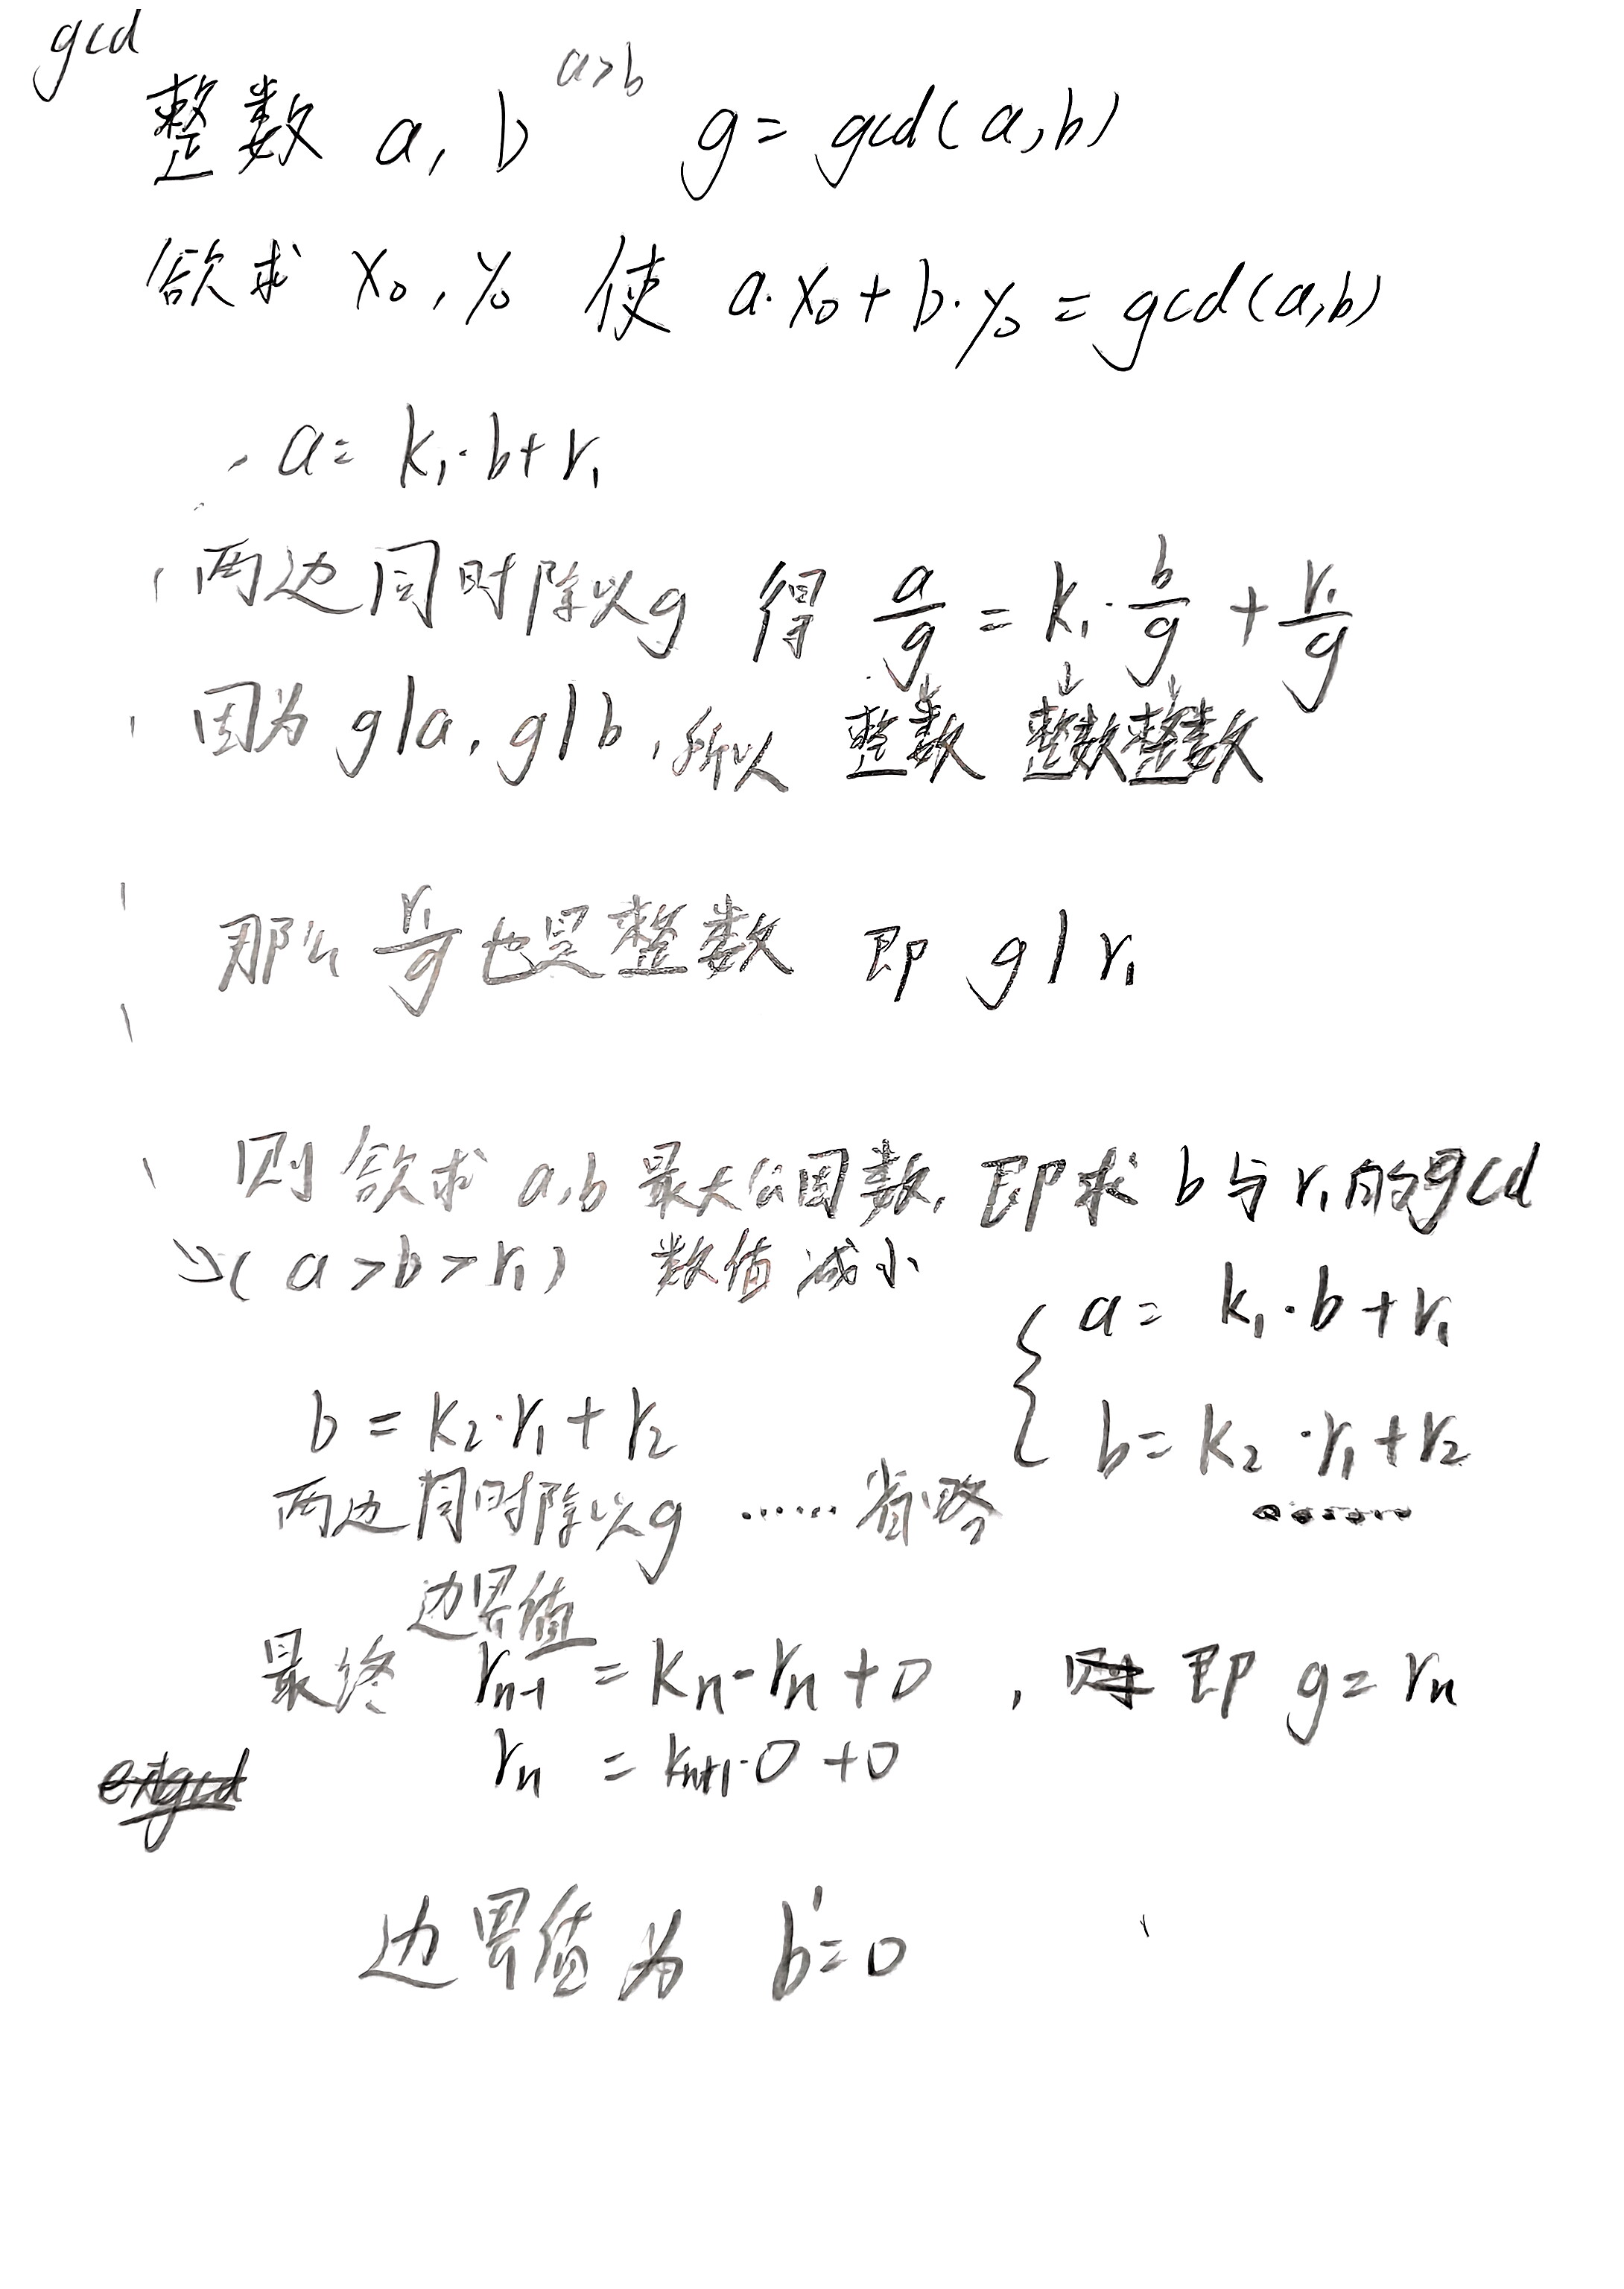 gcd
整数 a, b a>b g = gcd(a,b)
欲求 x₀, y₀ 使 a·x₀ + b·y₀ = gcd(a,b)
a = k₁·b + r₁
两边同时除以g 得 a/g = k₁·b/g + r₁/g
因为 g|a, g|b, 所以 整数 整数 整数
那么 r₁/g 也是整数 即 g|r₁
则欲求 a,b 最大公因数, 即求 b 与 r₁ 的 gcd
(a>b>r₁) 数值减小
{ a = k₁·b + r₁
b = k₂·r₁ + r₂
b = k₂·r₁ + r₂
两边同时除以g ……省略
边界值
最终 rₙ₋₁ = kₙ·rₙ + 0 , 即 g = rₙ
rₙ = kₙ₊₁·0 + 0
extgcd
边界值为 b' = 0